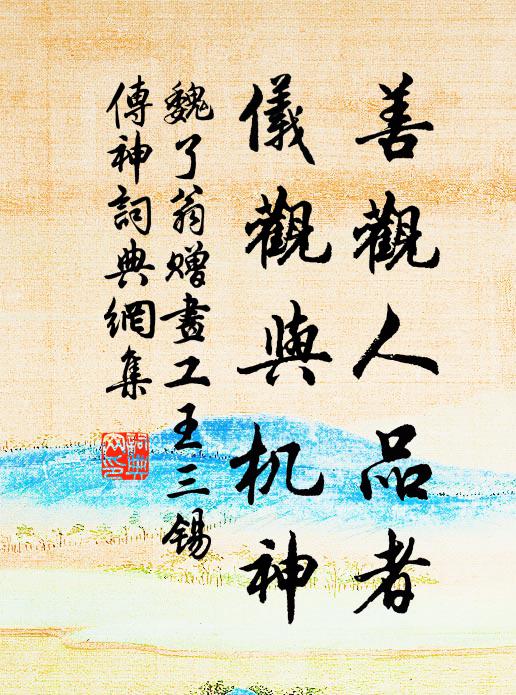 善觀人品者
儀觀與机神
魏了翁贈畫工王三錫
傳神詞典網集